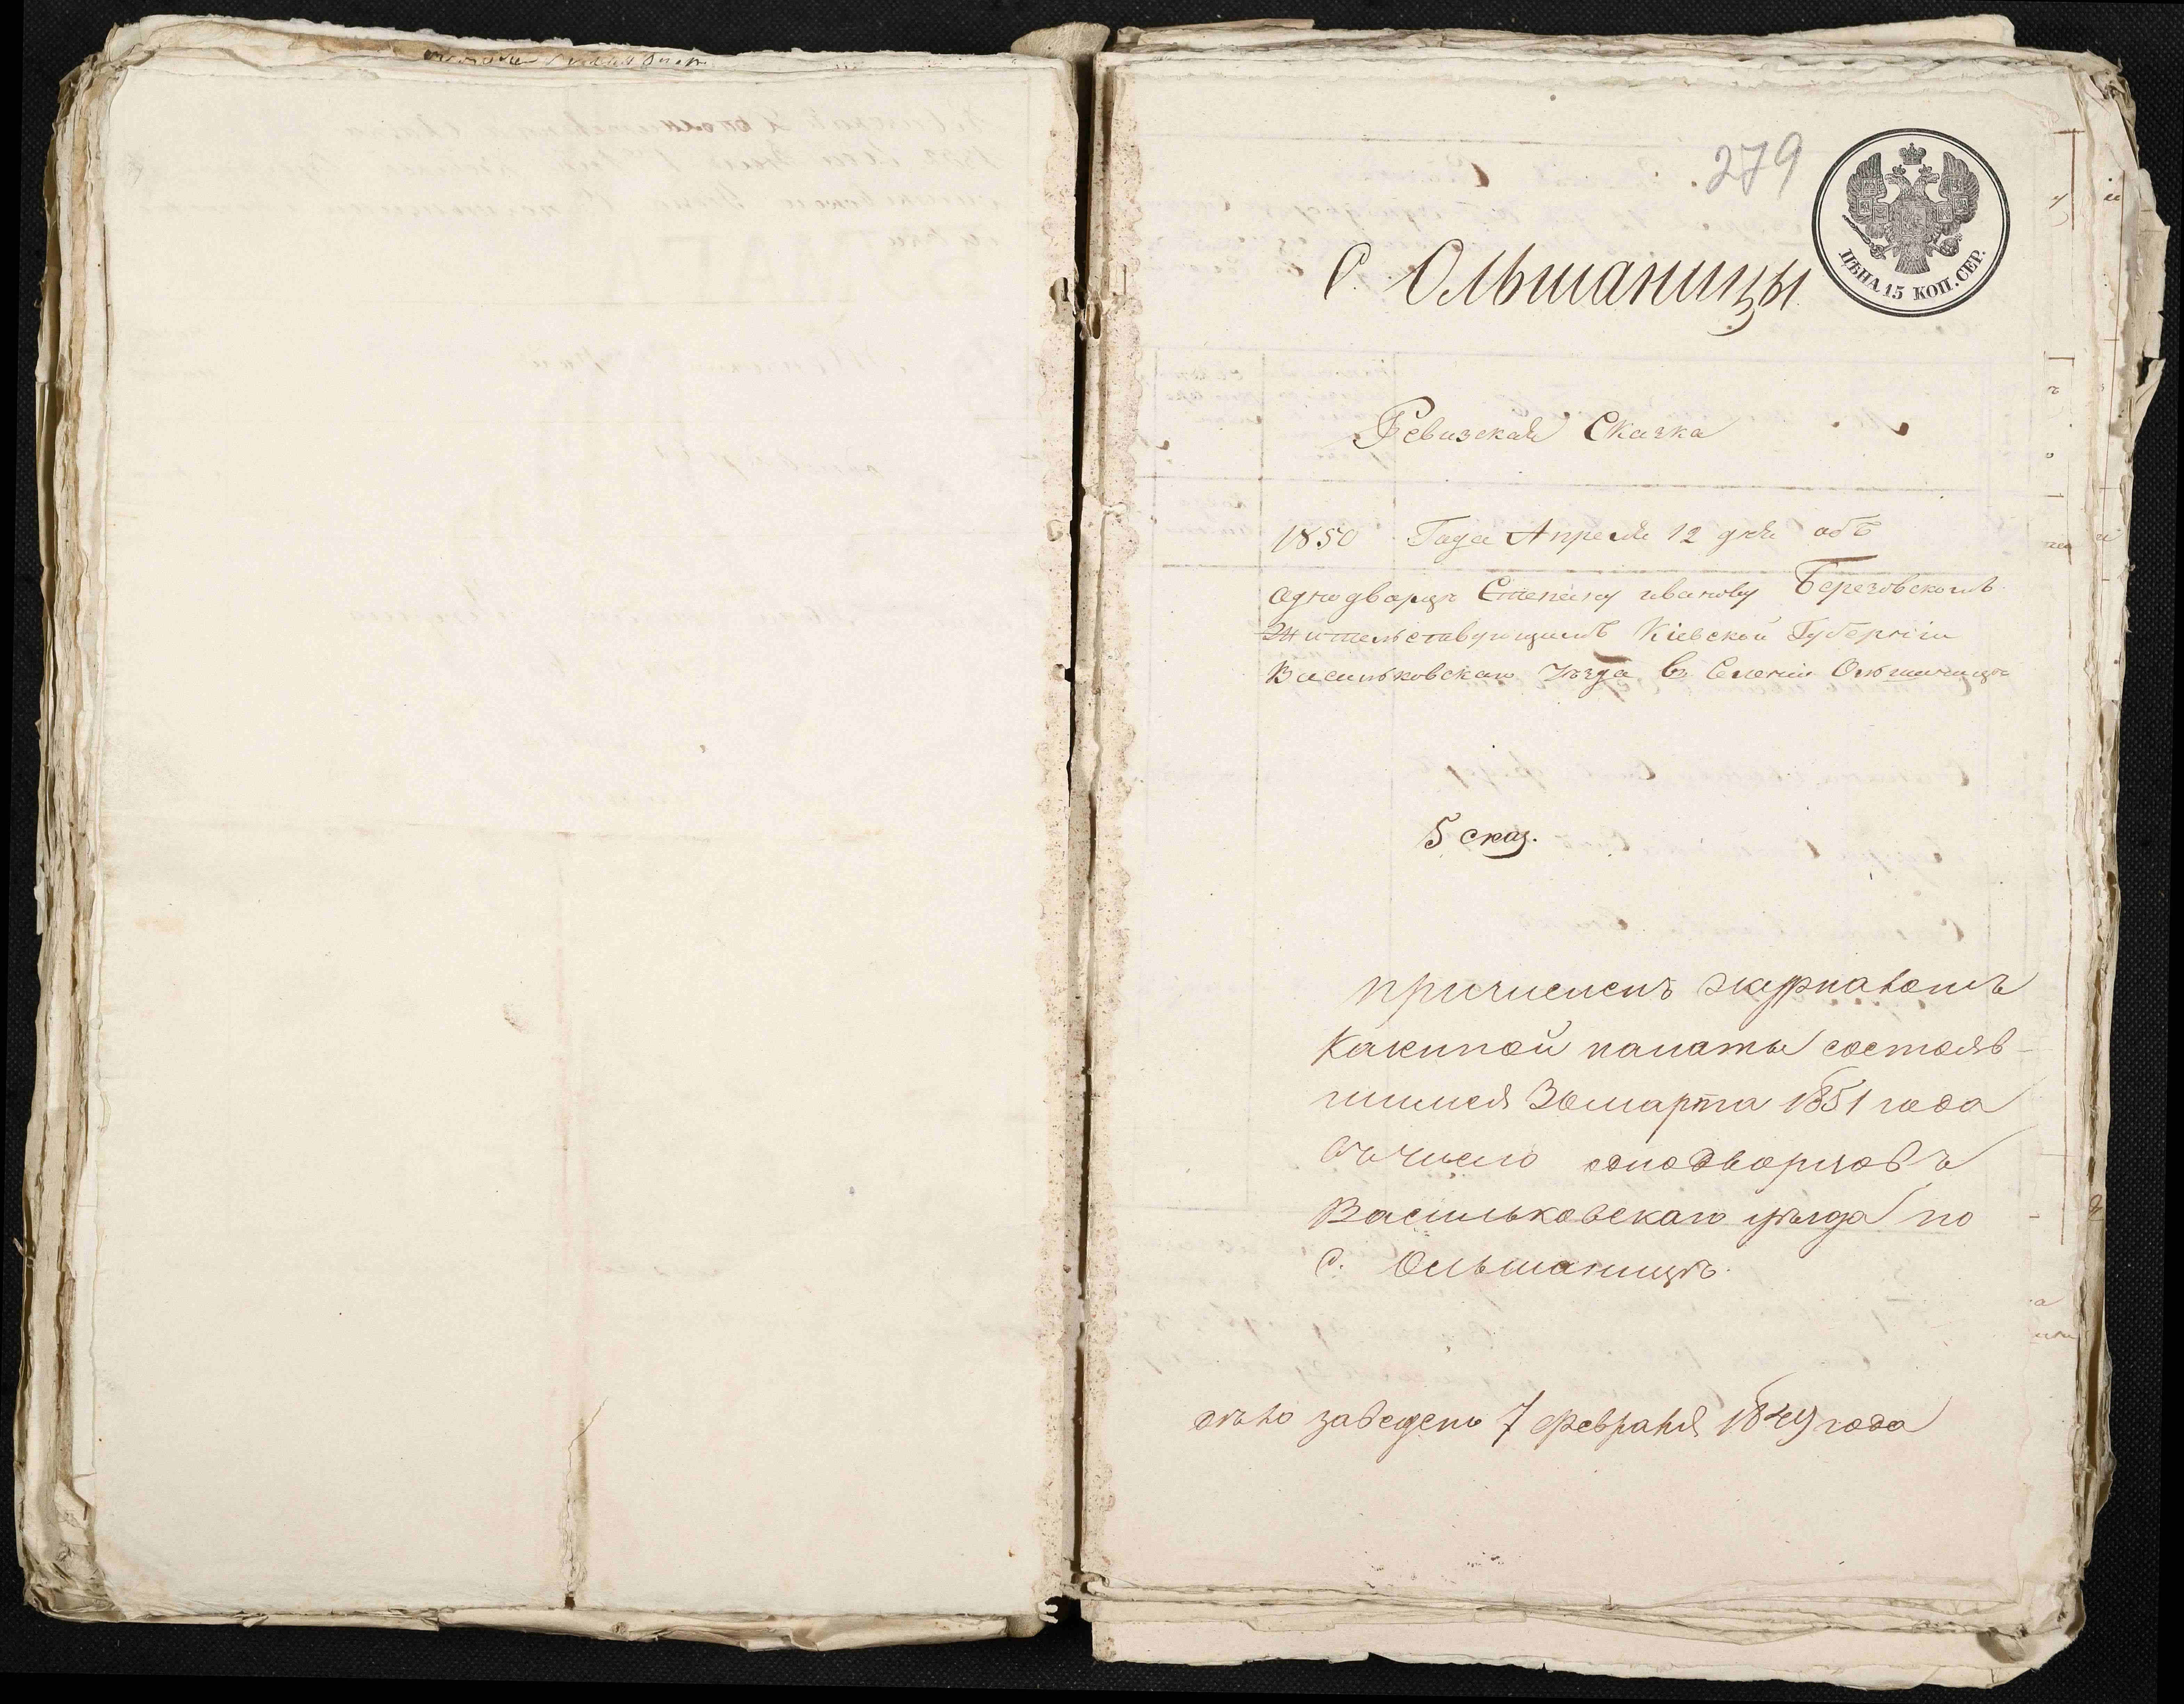 279
ЦѢНА 15 КОП. СЕР.
С. Ольшаницы.
Ревизская Сказка
1850 Года Апреля 12 дня объ
однодворцѣ Степану иванову Березовскомъ
Жительствующимъ Кіевской Губерніи
Васильковскаго уѣзда въ Селеніи Ольшаницѣ
5 сказ.
причисленъ журналомъ
Казенной палаты состояв-
шимся 30 марта 1851 года
въ число однодворцовъ
Васильковскаго уѣзда по
с. Ольшаницѣ.
дѣло заведено 7 февраля 1849 года